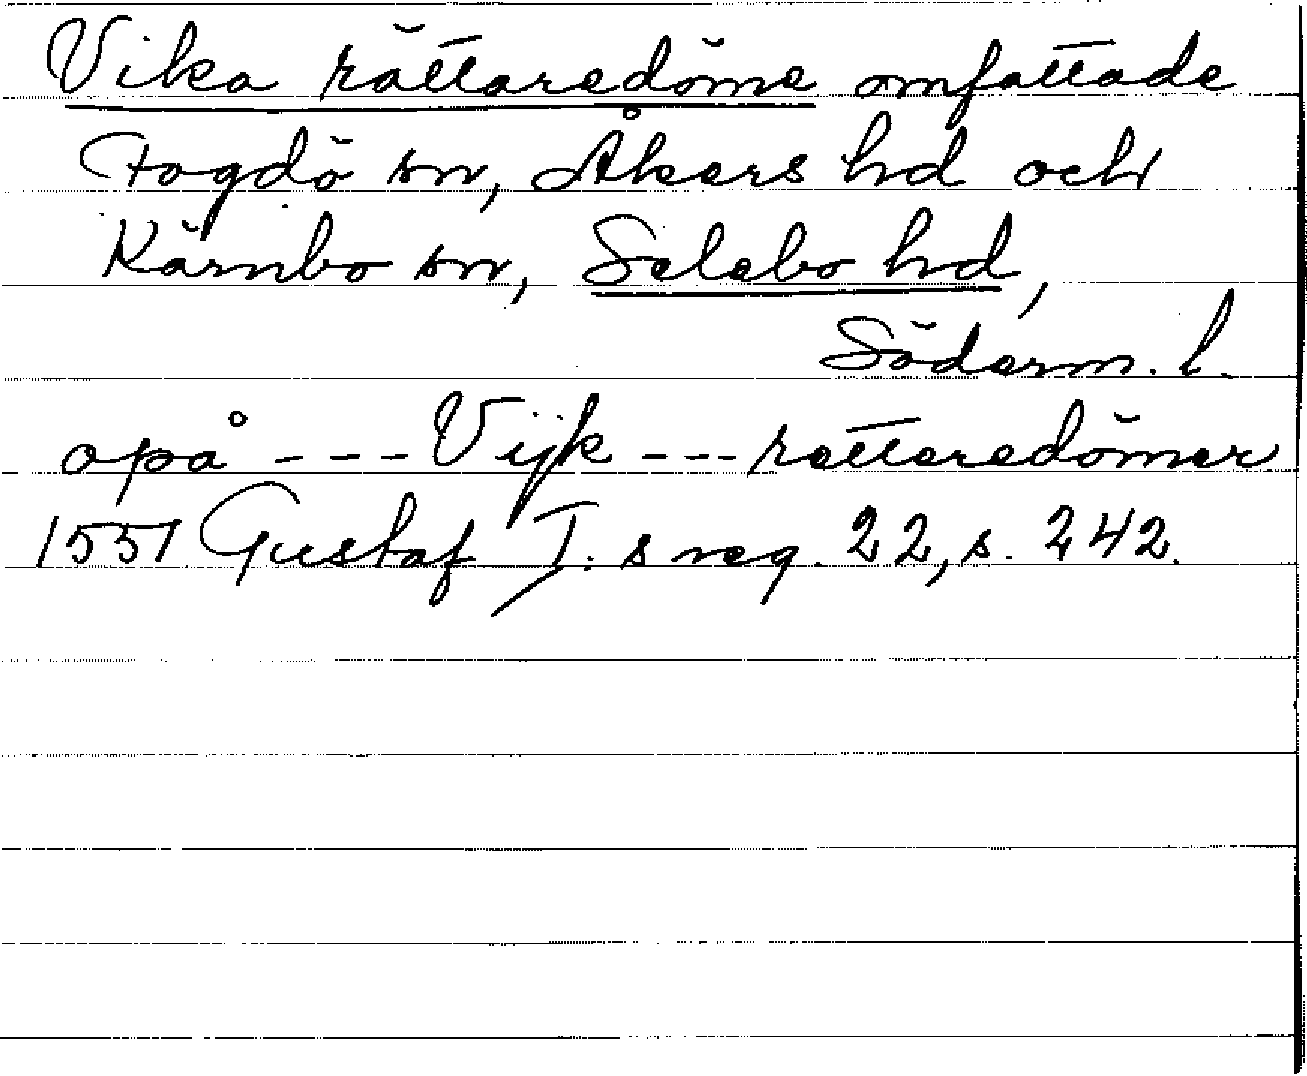 Vika rättaredöme omfattade
Fogdö sn, Åkers hd och
Kärnbo sn, Selebo hd,
Söderm. l.
opå --- Vijk --- rettaredömer
1551 Gustaf I: s reg. 22, s. 242.